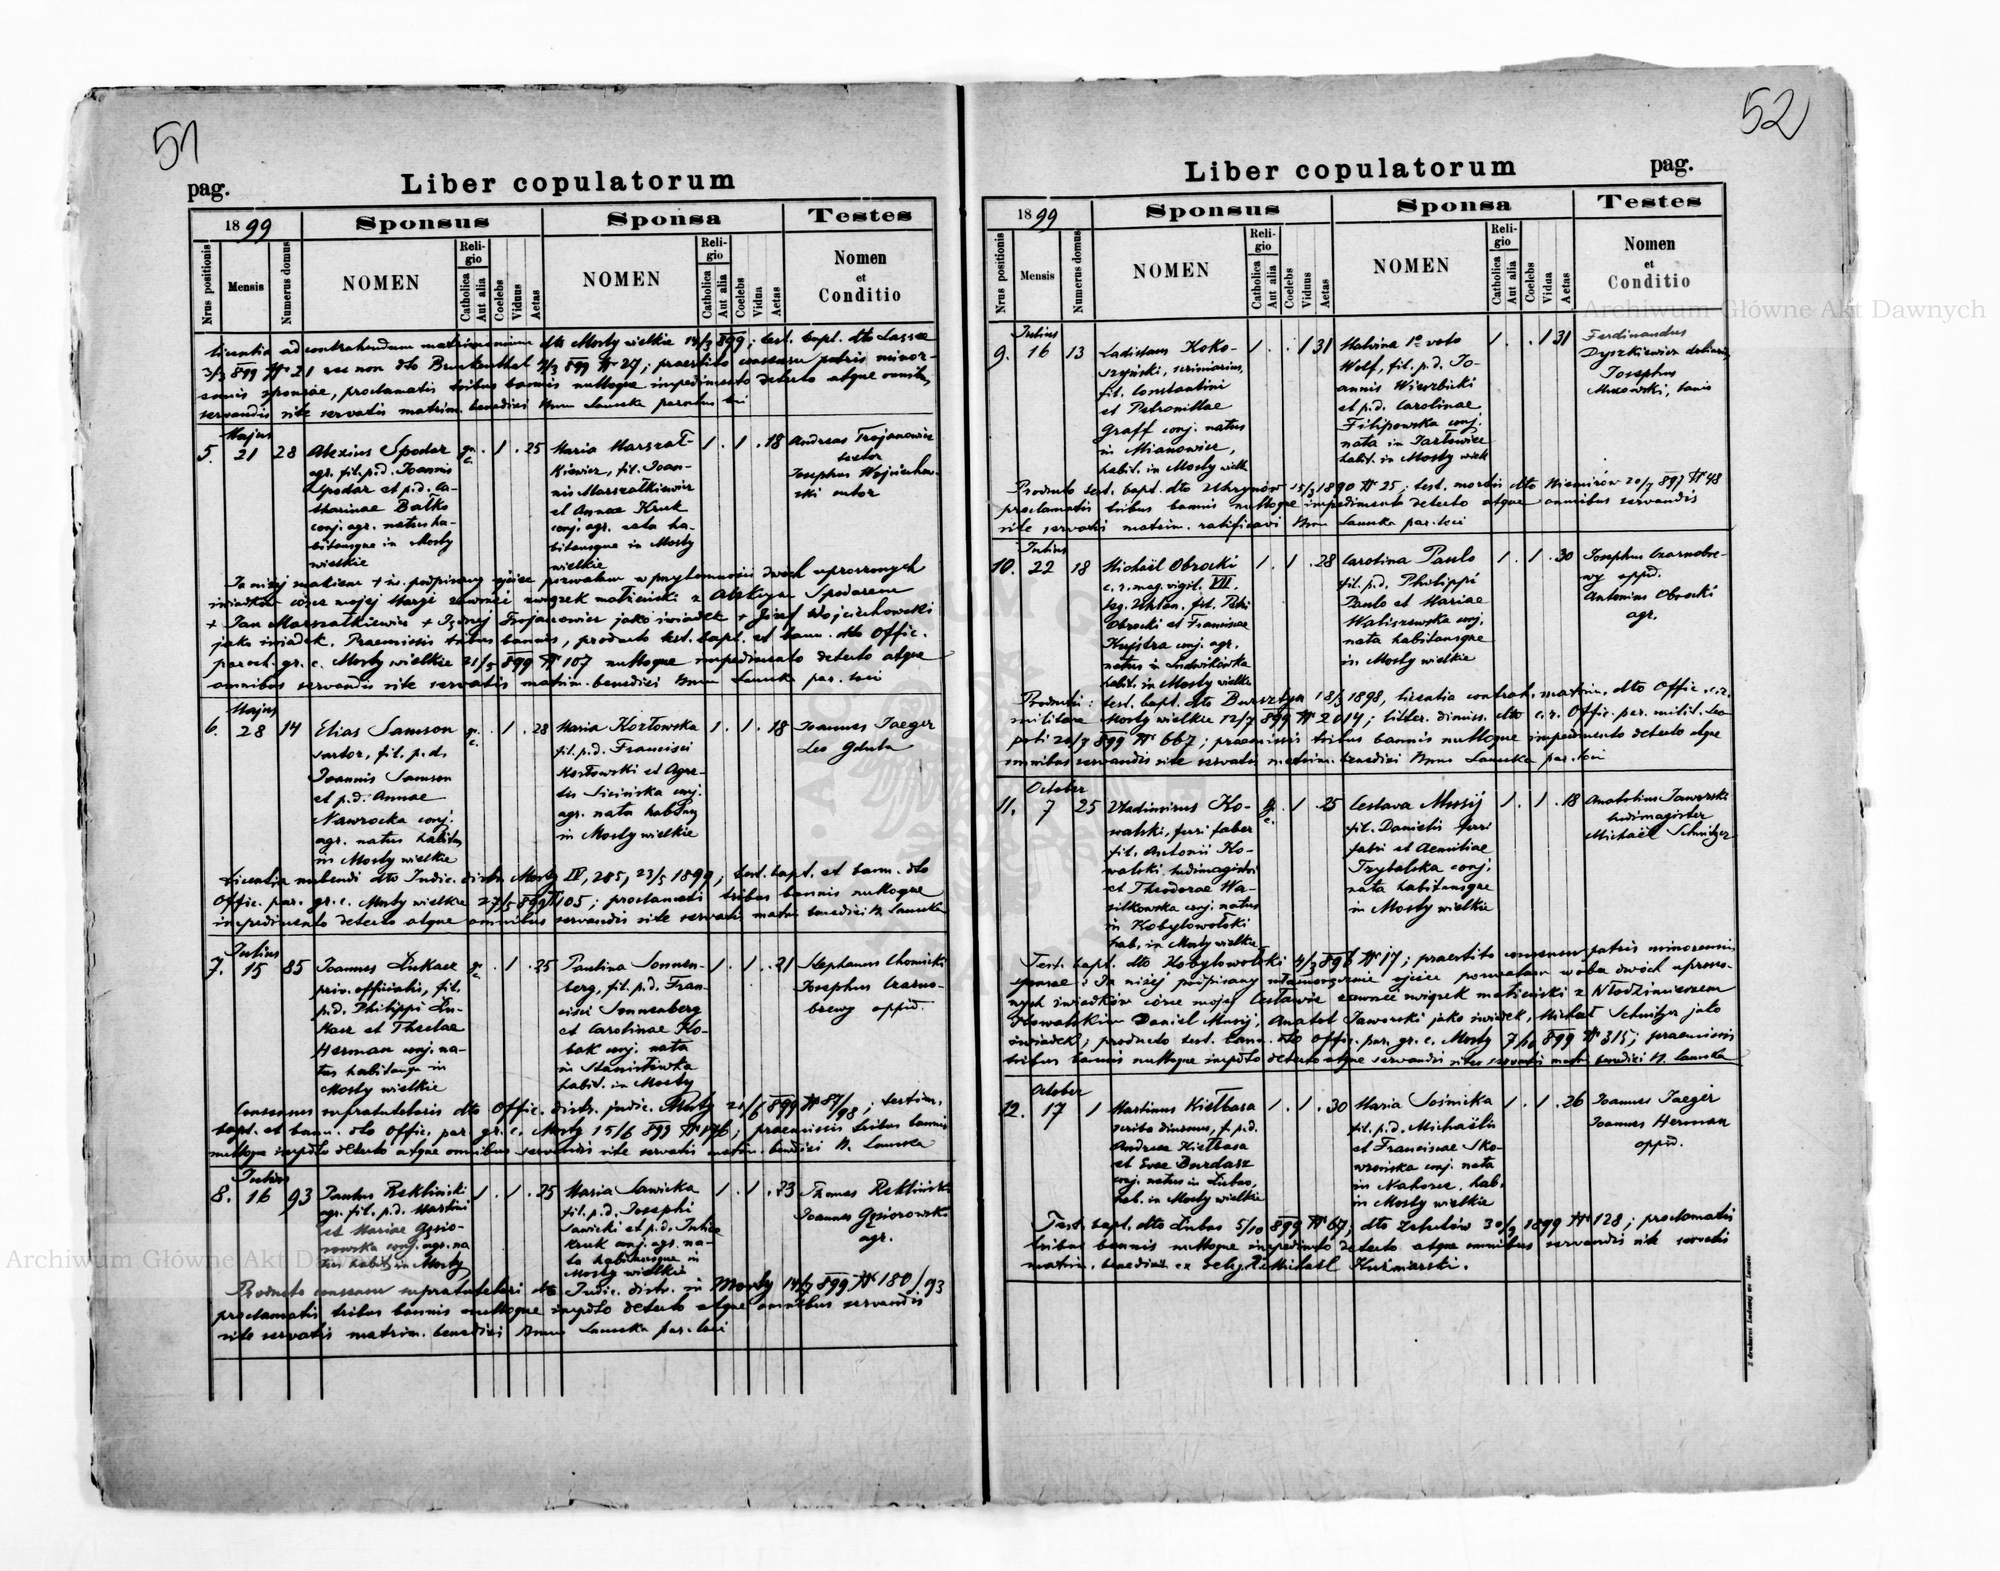 51
pag. Liber copulatorum
1899 Sponsus Sponsa Testes
Nrus positionis Mensis Numerus domus NOMEN Religio Catholica Aut alia Coelebs Viduus Aetas NOMEN Religio Catholica Aut alia Coelebs Vidua Aetas Nomen et Conditio
licentia ad contrahendum matrimonium dto Mosty wielkie 14/3 899; test. bapt. dto
3/3 899 № 21 nec non dto Bruckenthal 4/3 899 № 27; praestito consensu patris minor-
ennis sponsae, proclamatis tribus bannis nulloque impedimento detecto atque omnibus
servandis rite servatis matrim. benedixi Bruno Launka parochus loci
Majus
5. 21 28 Alexius Spodar gr. c. . 1 . 25 Maria Marszał- 1 . 1 . 18 Andreas Trojanowicz
agr. fil. p.d. Joannis kiewicz, fil. Joan- sutor
Spodar et p.d. Ca- nis Marszałkiewicz Josephus Wojciechow-
tharinae Bałko et Annae Kruk ski sutor
conj. agr. natus ha- conj. agr. nata ha-
bitansque in Mosty bitansque in Mosty
wielkie wielkie
Ja niżej znakiem + św. podpisany ojciec pozwalam w przytomności dwóch uproszonych
świadków córce mojej Maryi zawrzeć związek małżeński z Aleksym Spodarem
+ Jan Marszałkiewicz + Trojanowicz jako świadek + Józef Wojciechowski
jako świadek. Praemissis tribus bannis, producto test. bapt. et bann. dto Offic.
paroch. gr. c. Mosty wielkie 21/5 899 № 107 nulloque impedimento detecto atque
omnibus servandis rite servatis matrim. benedixi Bruno Launka par. loci
Majus
6. 28 14 Elias Samson gr. c. . 1 . 28 Maria Kozłowska 1 . 1 . 18 Joannes Jaeger
sartor, fil. p.d. fil. p.d. Francisci Leo Gdula
Joannis Samson Kozłowski et Agne-
et p.d. Annae tis Sicińska conj.
Nawrocka conj. agr. nata habitansq
agr. natus habitans in Mosty wielkie
in Mosty wielkie
Licentia nubendi dto Judic. distr. Mosty IV, 285, 23/5 1899; test. bapt. et bann. dto
Offic. par. gr. c. Mosty wielkie 27/5 899 № 105; proclamatis tribus bannis nulloque
impedimento detecto atque omnibus servandis rite servatis matrim benedixi B. Launka
Julius
7. 15 85 Joannes Łukacz gr. c. . 1 . 25 Paulina Sonnen- 1 . 1 . 21 Stephanus Chomicki
priv. officialis, fil. berg, fil. p.d. Fran- Josephus Czarno-
p.d. Philippi Łu- cisci Sonnenberg brewy oppid.
kacz et Theclae et Carolinae Klo-
Herman conj. na- bak conj. nata
tus habitansq in in Stanisłówka
Mosty wielkie habit. in Mosty
Consensus supratutelaris dto Offic. distr. judic. Mosty 21/6 899 № 87/98; testim.
bapt. et bann. dto Offic. par. gr. c. Mosty 15/6 899 № 176; praemissis tribus bannis
nulloque impdto detecto atque omnibus servandis rite servatis matrim. benedixi B. Launka
Julius
8. 16 93 Paulus Rekliński 1 . 1 . 25 Maria Sawicka 1 . 1 . 23 Thomas Rekliński
agr. fil. p.d. Martini fil. p.d. Josephi Joannes Gąsiorowski
et Mariae Gąsio- Sawicki et p.d. Juliae agr.
rowska conj. agr. na Kruk conj. agr. na-
tus habit. in Mosty ta habitansque in
Mosty wielkie
Producto consensu supratutelari dto Judic. distr. in Mosty 14/7 899 № 180/93
proclamatis tribus bannis nulloque impdto detecto atque omnibus servandis
rite servatis matrim. benedixi Bruno Launka par. loci
52
Liber copulatorum pag.
1899 Sponsus Sponsa Testes
Nrus positionis Mensis Numerus domus NOMEN Religio Catholica Aut alia Coelebs Viduus Aetas NOMEN Religio Catholica Aut alia Coelebs Vidua Aetas Nomen et Conditio
Julius
9. 16 13 Ladislaus Koko- 1 . . 1 31 Malvina 1º voto 1 . . 1 31 Ferdinandus
szyński, scriniarius, Wolf, fil. p.d. Jo- Dyszkiewicz doliarius
fil. Constantini annis Wierzbicki Josephus
et Petronillae et p.d. Carolinae lanio
Graff conj. natus Filipowska conj.
in Mianowice, nata in Tartowice
habit. in Mosty wielk habit. in Mosty wielk
Producto test. bapt. dto Uhrynów 15/3 1890 № 25; test. mortis dto Niemirów 20/7 897 № 48
proclamatis tribus bannis nulloque impedimento detecto atque omnibus servandis
rite servatis matrim. ratificavi Bruno Launka par. loci
Julius
10. 22 18 Michaël Obrocki 1 . 1 . 28 Carolina Paulo 1 . 1 . 30 Josephus Czarnobre-
c. r. mag. vigil. VII. fil. p.d. Philippi wy oppid.
reg. Uhlan. fil. Petri Paulo et Mariae Antonius Obrocki
Obrocki et Franciscae Waliszewska conj. agr.
conj. agr. nata habitansque
natus in Ludwikówka in Mosty wielkie
habit. in Mosty wielkie
Producti: test. bapt. dto Bursztyn 18/3 1898, licentia contrah. matrim. dto Offic. c. r.
militare Mosty wielkie 12/7 899 № 2014; litter. dimiss. dto c. r. Offic. par. milit. Leo-
poli 20/7 899 № 667; praemissis tribus bannis nulloque impedimento detecto atque
omnibus servandis rite servatis matrim. benedixi Bruno Launka par. loci
October
11. 7 25 Vladimirus Ko- gr. c. . 1 . 25 Ceslava Musij 1 . 1 . 18 Anatolius Jaworski
walski, ferri faber fil. Danielis ferri ludimagister
fil. Antonii Ko- fabri et Aemiliae Michaël Schnitzer
walski, ludimagistri Trybalska conj.
et Theodorae Wa- nata habitansque
silkowska conj. natus in Mosty wielkie
in Kobylowołoki
hab. in Mosty wielkie
Test. bapt. dto Kobylowołoki 4/3 896 № 17; praestito consensu patris minorennis
sponsae: Ja niżej podpisany własnoręcznie ojciec pozwalam wobec dwóch uproszo-
nych świadków córce mojej Cesławie zawrzeć związek małżeński z Włodzimierzem
Kowalskim Daniel Musij, Anatol Jaworski jako świadek, Michał Schnitzer jako
świadek; producto test. bann. dto Offic. par. gr. c. Mosty 7/10 899 № 315; praemissis
tribus bannis nulloque impdto detecto atque servandis rite servatis matrim benedixi B. Launka
October
12. 17 1 Martinus Kiełbasa 1 . 1 . 30 Maria Sośnicka 1 . 1 . 26 Joannes Jaeger
scriba diurnus, f. p.d. fil. p.d. Michaëlis Joannes Herman
Andreae Kiełbasa et Franciscae Sko- oppid.
et Evae Burdasz wrońska conj. nata
conj. natus in Żubno, in Nahorce, hab.
hab. in Mosty wielkie in Mosty wielkie
Test. bapt. dto Łubno 5/10 899 № 67; dto Żelechów 30/9 1899 № 128; proclamatis
tribus bannis nulloque impedimto detecto atque omnibus servandis rite servatis
matrim. benedixit ex deleg. R. Michaël Kuźniarski.
Archiwum Główne Akt Dawnych
Archiwum Główne Akt Dawnych